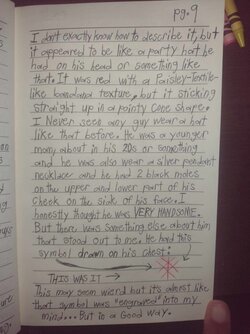 pg. 9
I don't exactly know how to describe it, but
it appeared to be like a party hat he
had on his head or something like
that. It was red with a Paisley-Textile-
like bandana texture, but it sticking
straight up in a pointy cone shape.
I Never seen any guy wear a hat
like that before. He was a younger
man, about in his 20s or something
and he was also wear a silver pendant
necklace and he had 2 black moles
on the upper and lower part of his
cheek on the side of his face. I
honestly thought he was VERY HANDSOME.
But there was something else about him
that stood out to me. He had this
symbol drawn on his chest:
THIS WAS IT
This may seem wierd but it's almost like
that symbol was "engraved" into my
mind... But in a Good way.